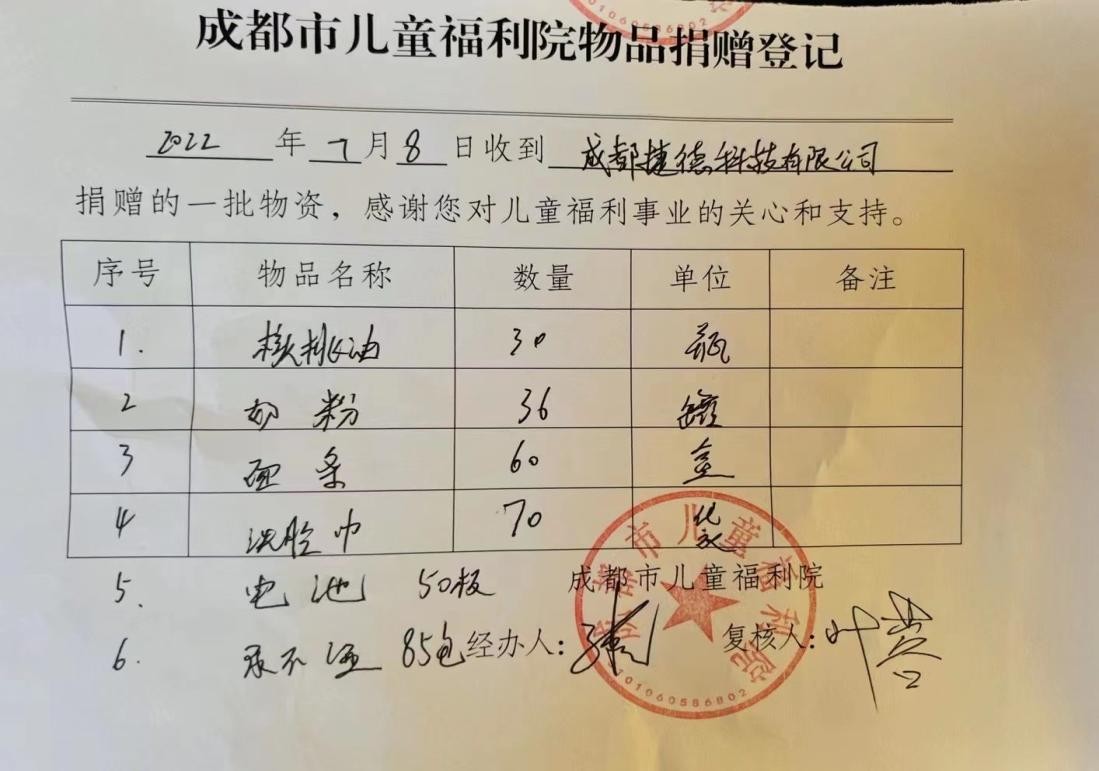 成都市儿童福利院物品捐赠登记
2022 年 7 月 8 日收到 成都捷德科技有限公司
捐赠的一批物资，感谢您对儿童福利事业的关心和支持。
序号 物品名称 数量 单位 备注
1. 核桃油 30 瓶
2 奶粉 36 罐
3 面条 60
4 洗脸巾 70 袋
5、 电池 50板 成都市儿童福利院
6. 尿不湿 85包 经办人： 复核人：叶蓉
成都市儿童福利院
5101060586802